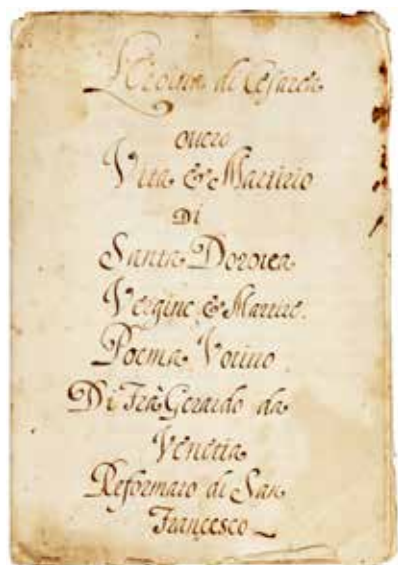 L'Eroina di Cesarea
overo
Vita & Martirio
Di
Santa Dorotea
Vergine & Martire.
Poema Votivo
Di Frà Gerardo da
Venetia
Reformato di San
Francesco